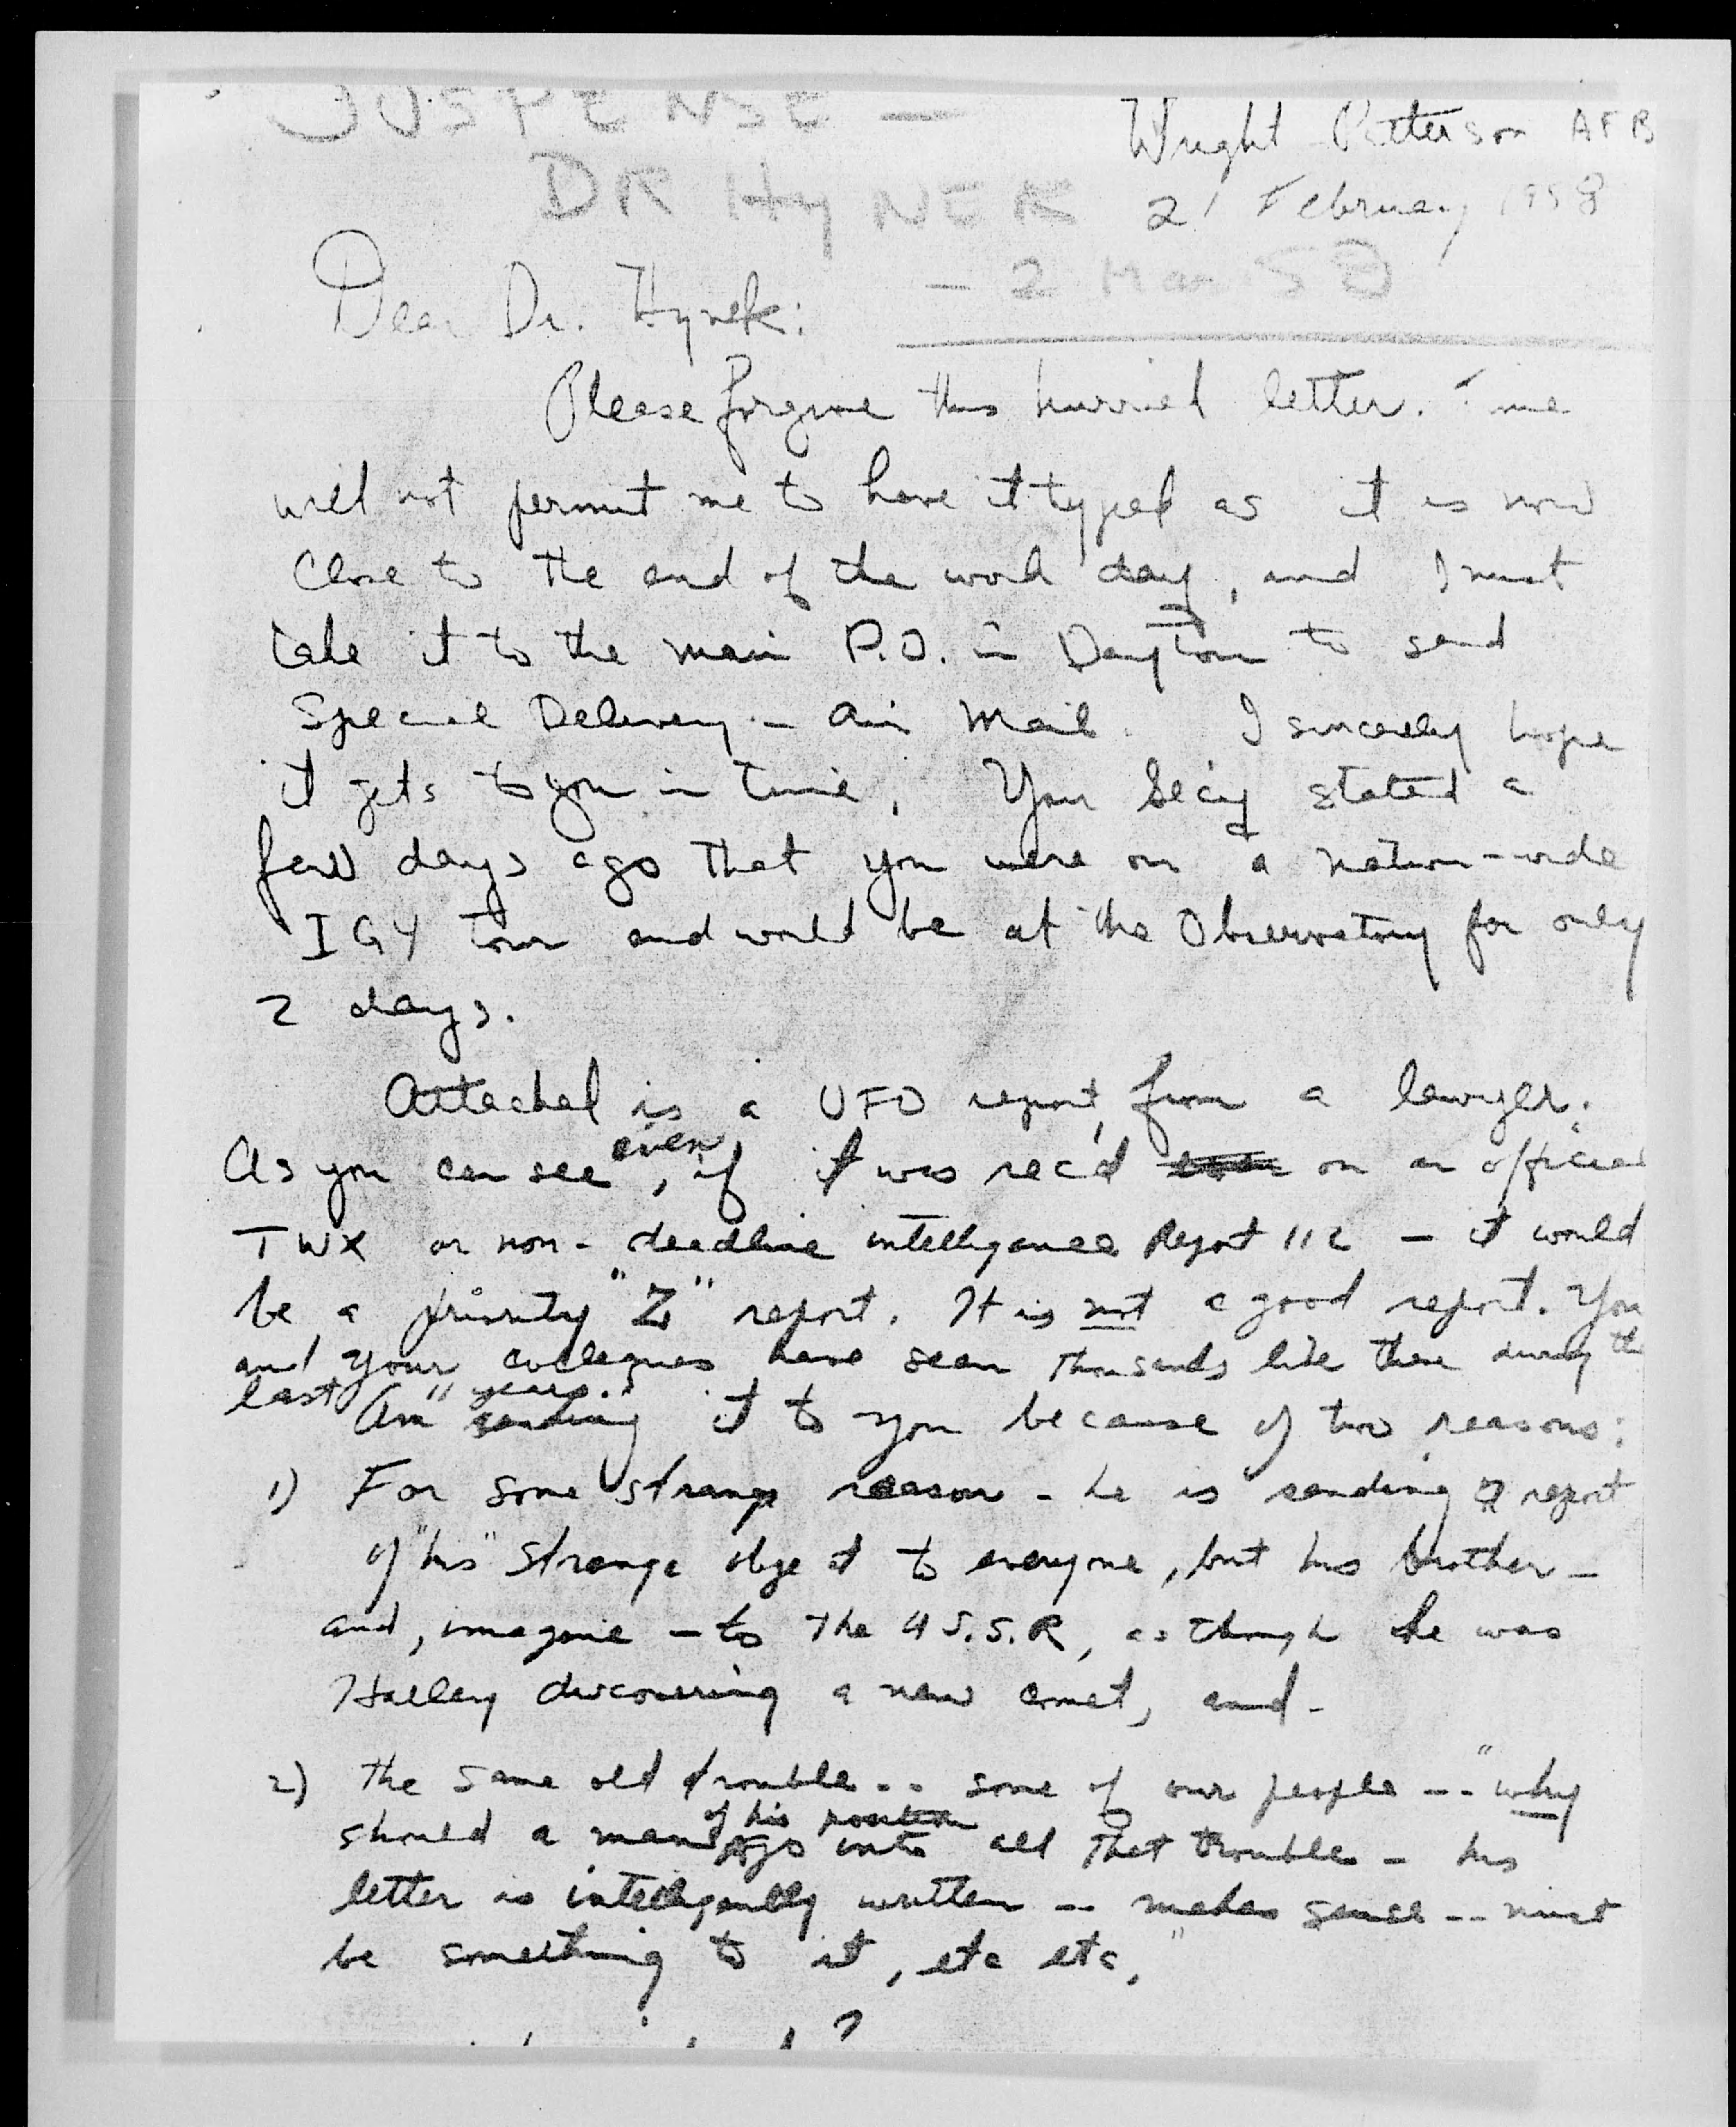 SUSPENSE —
DR HYNEK
Wright Patterson AFB
21 February 1958
— 2 Mar 58
Dear Dr. Hynek:
Please forgive this hurried letter. Time
will not permit me to have it typed as it is now
close to the end of the work day, and I must
take it to the main P.O. in Dayton to send
Special Delivery - Air Mail. I sincerely hope
it gets to you in time. Your Sec'y stated a
few days ago that you were on a nation-wide
IGY tour and would be at the Observatory for only
2 days.
Attached is a UFO report, from a lawyer.
As you can see, even if it was rec'd on an official
TWX or non-deadline intelligence Report 112 — it would
be a priority "Z" report. It is not a good report. You
and your colleagues have seen thousands like these during the
last years.
Am sending it to you because of two reasons:
1) For some strange reason - he is sending a report
of "his" strange object to everyone, but his brother -
and, imagine - to the U.S.S.R, as though he was
Halley discovering a new comet, and -
2) the same old trouble -- some of our people -- "why
should a man of his position go into all that trouble - his
letter is intelligently written -- makes sense -- must
be something to it, etc etc."